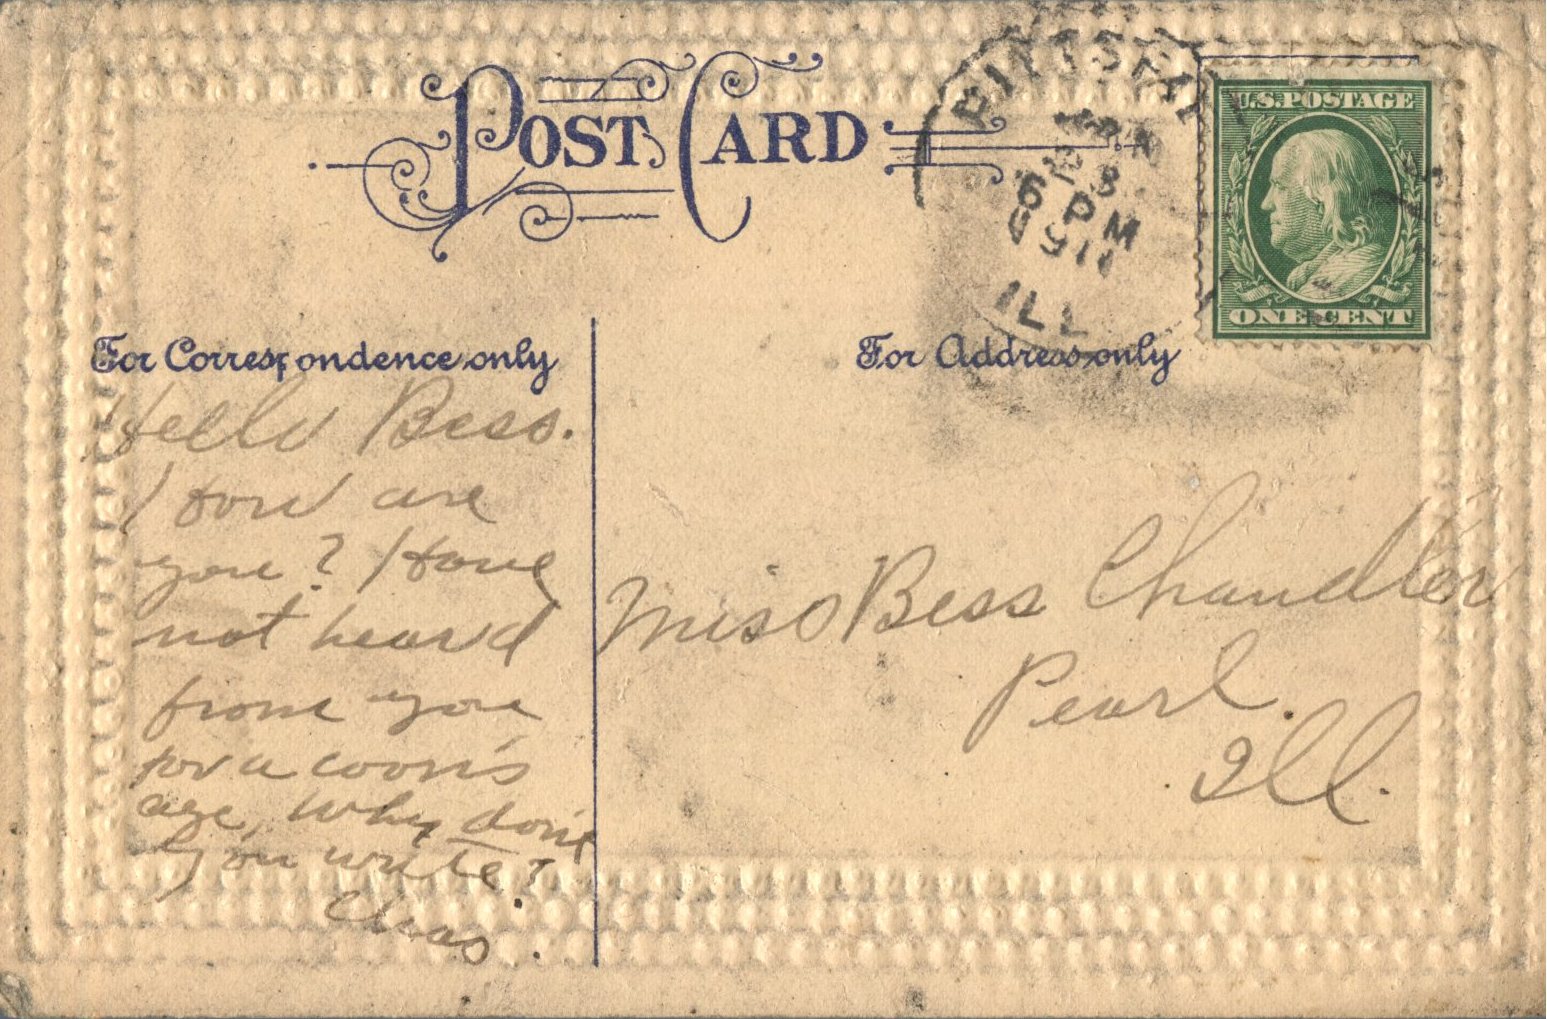 POST CARD
PITTSFI
6 PM
1911
ILL
U.S. POSTAGE
ONE CENT
For Correspondence only
For Address only
Hello Bess.
How are
you? Have
not heard
from you
for a coon's
age, why don't
you write?
Chas.
Miss Bess Chandler
Pearl.
Ill.